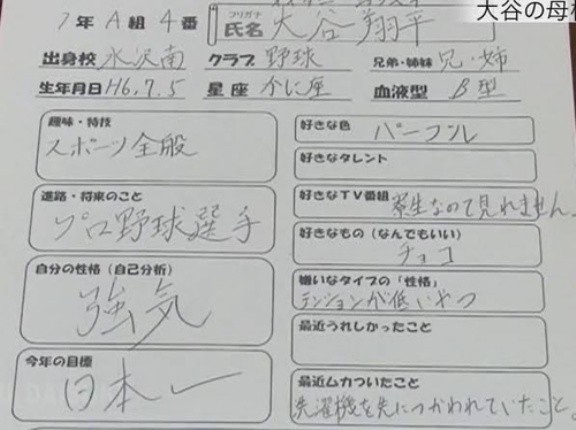 大谷の母校
1年 A組 4番
フリガナ
氏名 大谷 翔平
出身校 水沢南 クラブ 野球 兄弟・姉妹 兄・姉
生年月日 H6.7.5 星座 かに座 血液型 B型
趣味・特技
スポーツ全般
進路・将来のこと
プロ野球選手
自分の性格(自己分析)
強気
今年の目標
日本一
好きな色 パープル
好きなタレント
好きなTV番組 寮生なので見れません。
好きなもの(なんでもいい)
チョコ
嫌いなタイプの「性格」
テンションが低いやつ
最近うれしかったこと
最近ムカついたこと
洗濯機を先につかわれていたこと。